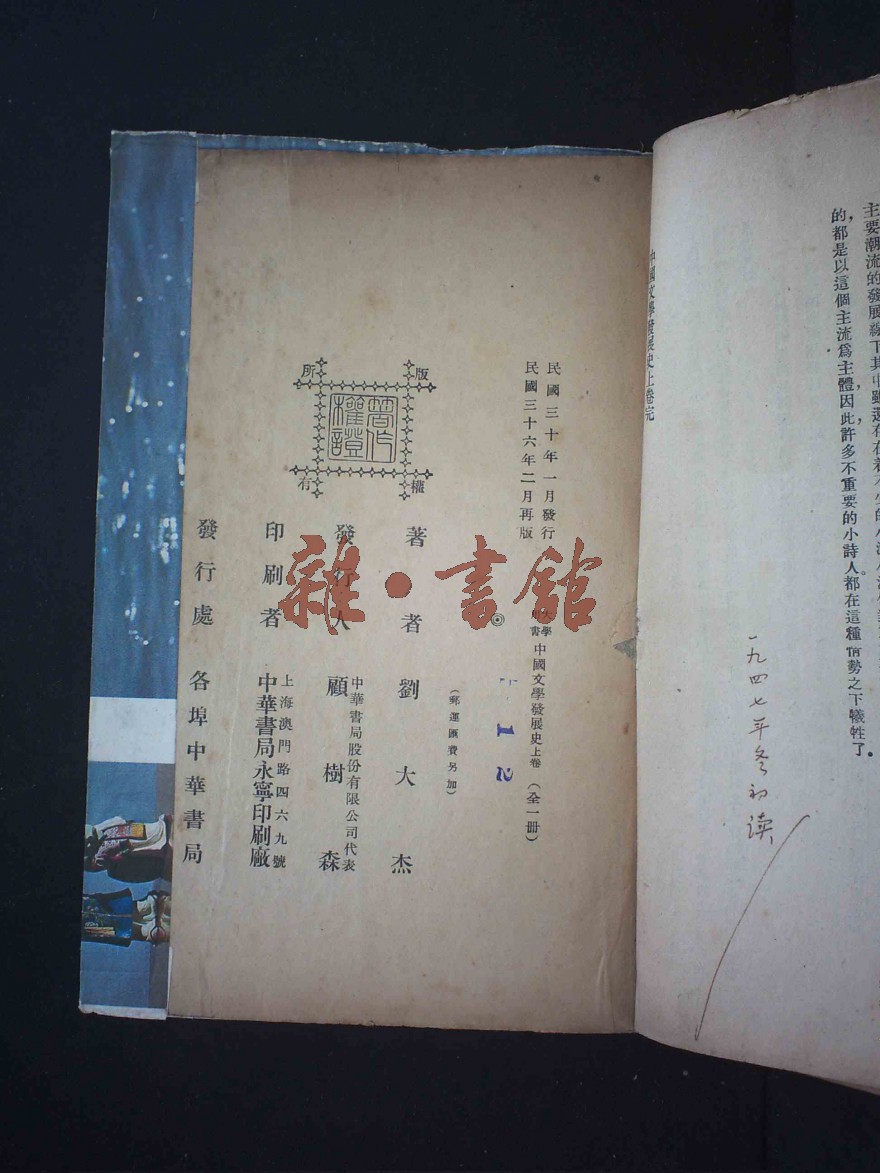 主要潮流的發展線下其中雖還存在着不少的
的,都是以這個主流爲主體,因此,許多不重要的小詩人,都在這種情勢之下犧牲了。
一九四七年冬初读
中國文學發展史上卷完
民國三十年一月發行
民國三十六年二月再版
中國文學發展史上卷(全一冊)
1 2
(郵運匯費另加)
著者 劉大杰
發行人 顧樹森
中華書局股份有限公司代表
印刷者 中華書局永寧印刷廠
上海澳門路四六九號
發行處 各埠中華書局
版權所有
著作權證
雜·書館